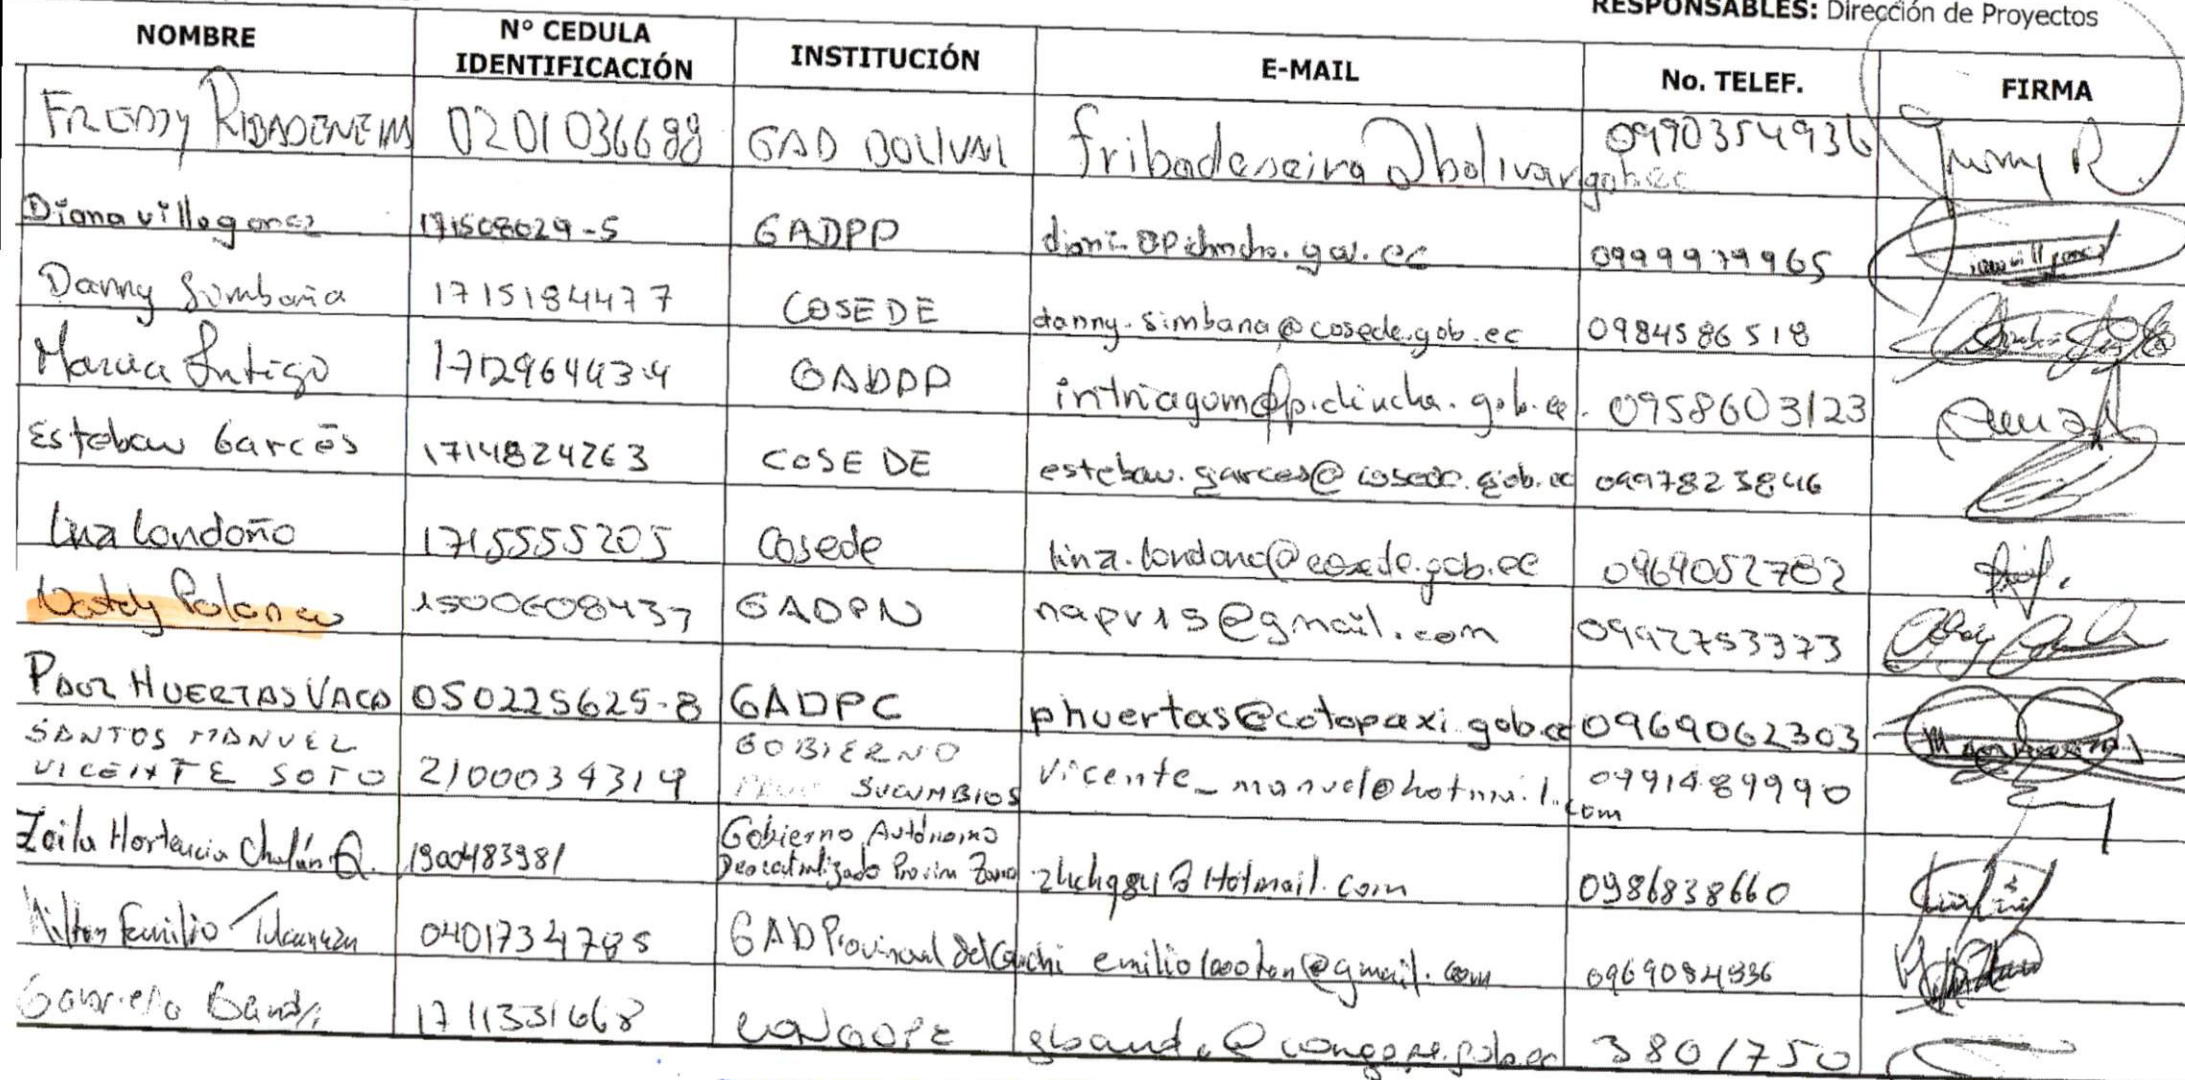 RESPONSABLES: Dirección de Proyectos
NOMBRE N° CEDULA IDENTIFICACIÓN INSTITUCIÓN E-MAIL No. TELEF. FIRMA
FREDDY RIBADENEIRA 0201036688 GAD BOLIVAR fribadeneira@bolivar.gob.ec 0990354936
Diana Villagomez 171508029-5 GADPP 0999979965
Danny Simbaña 1715184477 COSEDE danny.simbana@cosede.gob.ec 0984586518
Maria 171296443-4 GADPP intriagom@pichincha.gob.ec. 0958603123
Esteban Garcés 1714824263 COSEDE esteban.garces@cosede.gob.ec 0997823846
Lina Londoño 1715555205 Cosede lina.londono@cosede.gob.ec 0969052782
Polanco 1500608437 GADPN napv15@gmail.com 0992753373
PAUL HUERTAS VACA 050225625-8 GADPC phuertas@cotopaxi.gob.ec 0969062303
SANTOS MANUEL
VICENTE SOTO 2100034314 GOBIERNO SUCUMBIOS vicente_manuel@hotmail.com 0991489990
Zoila Hortencia Chalán Q. 1900483981 Gobierno Autónomo
Descentralizado Provin Zamo zhchq84@Hotmail.com 0986838660
Milton Emilio Tulcanaza 0401734785 GAD Provincial del Carchi 0969084936
Gabriela 1711331668 CONGOPE 3801750